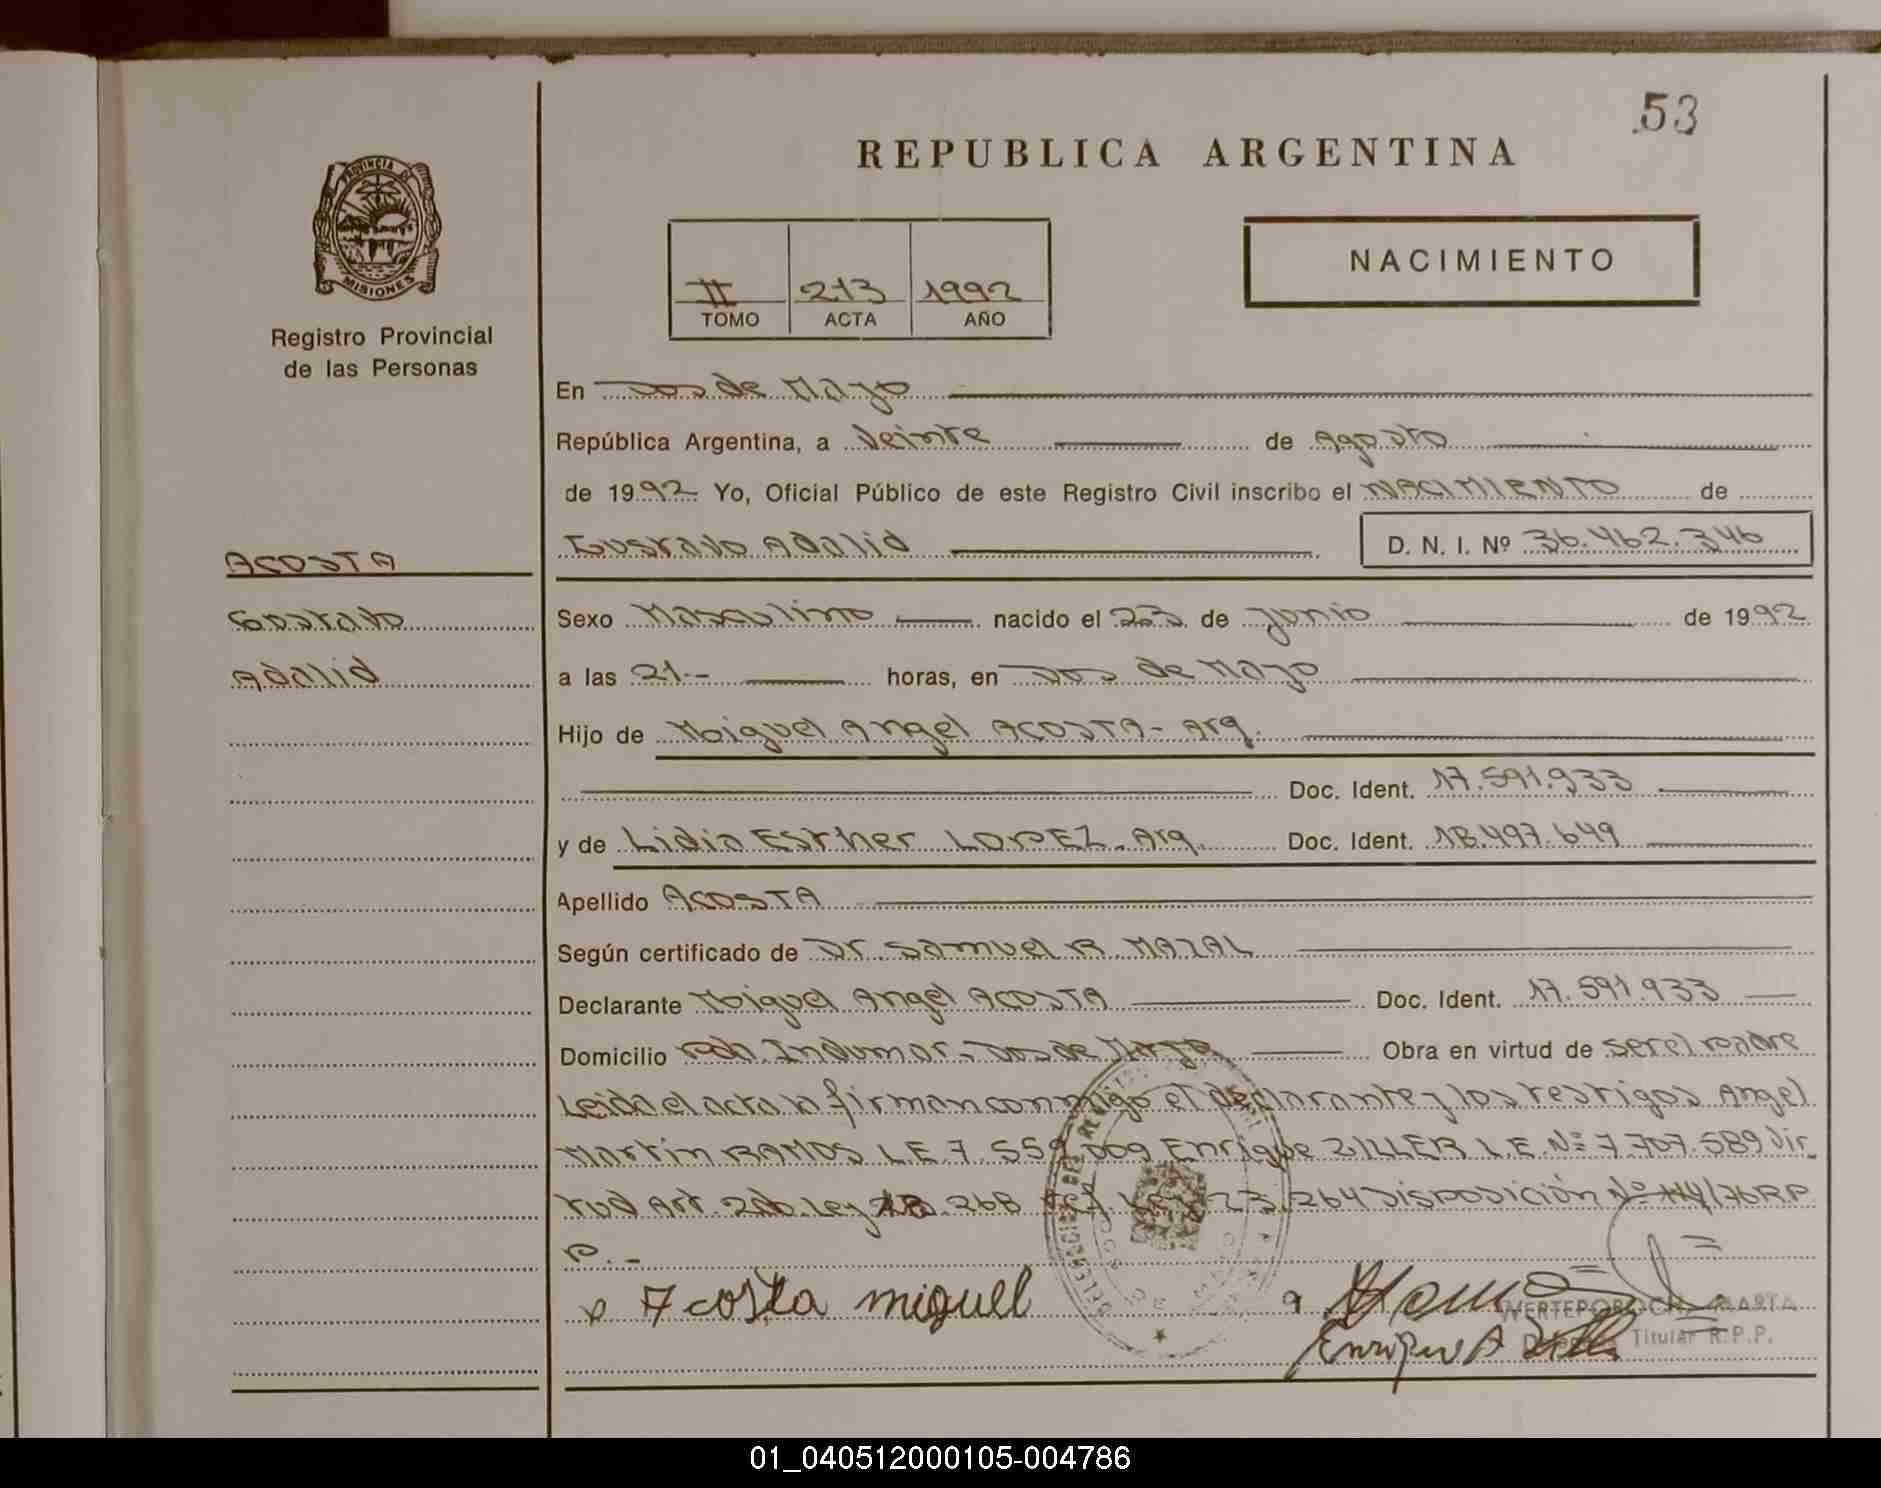 53
REPUBLICA ARGENTINA
PROVINCIA DE
MISIONES
Registro Provincial
de las Personas
II 213 1992
TOMO ACTA AÑO
NACIMIENTO
En Dos de Mayo
República Argentina, a Veinte de Agosto
de 1992 Yo, Oficial Público de este Registro Civil inscribo el NACIMIENTO de
Gustavo Adalid D. N. I. Nº 36.462.346
ACOSTA
Gustavo
Adalid
Sexo Masculino nacido el 23 de Junio de 1992
a las 21.- horas, en Dos de Mayo
Hijo de Miguel Angel ACOSTA - Arg.
Doc. Ident. 17.591.933
y de Lidia Esther LOPEZ. Arg. Doc. Ident. 18.497.649
Apellido ACOSTA
Según certificado de Dr. Samuel R. MAZAL
Declarante Miguel Angel ACOSTA Doc. Ident. 17.591.933
Domicilio Indumar - Dos de Mayo Obra en virtud de ser el padre
Leida el acta la firman conmigo el declarante y los testigos Angel
Martin RAMOS L.E. 7.559.009 Enrique ZILLER L.E. Nº 7.707.589 Vir
tud Art. Ley 18.268 Ley 23.264 Disposición Nº 114/76 R.P.
P. -
Acosta miguel
WERTEPOROCH MARTA
Titular R.P.P.
01_040512000105-004786